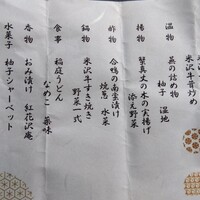 米沢牛昔炒め
温物
蕪の詰め物
柚子 湿地
揚物
蟹真丈の木の実揚げ
添え野菜
酢物
合鴨の南蛮漬け
焼葱 水菜
鍋物
米沢牛すき焼き
野菜一式
食事
稲庭うどん
なめこ 薬味
香物
おみ漬け 紅花沢庵
水菓子
柚子シャーベット